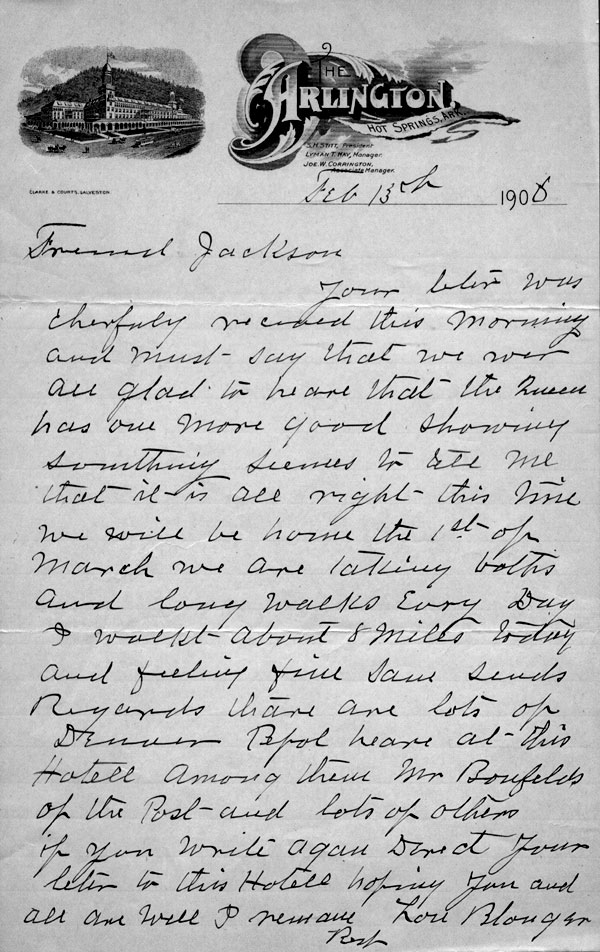 THE
ARLINGTON,
HOT SPRINGS, ARK.
S.H. STITT, President
LYMAN T. HAY, Manager.
JOE W. CORRINGTON,
Associate Manager.
CLARKE & COURTS, GALVESTON.
Feb 13th 1908
Freind Jackson
Your leter was
cherfuly recieved this Morning
and Must say that we wer
all glad to heare that the Queen
has one More good showing
somthing seemes to tell Me
that it is all right this time
we will be home the 1st of
March we are taking boths
and long walks Evry Day
I walkt about 8 Miles today
and feeling fine Sam sends
Regards thare are lots of
Denver Pepol heare at this
Hotell Among them Mr Bonfelds
of the Post and lots of others
if You Write agan Direct Your
leter to this Hotell hoping You and
all are Well I remane Lou Blonger